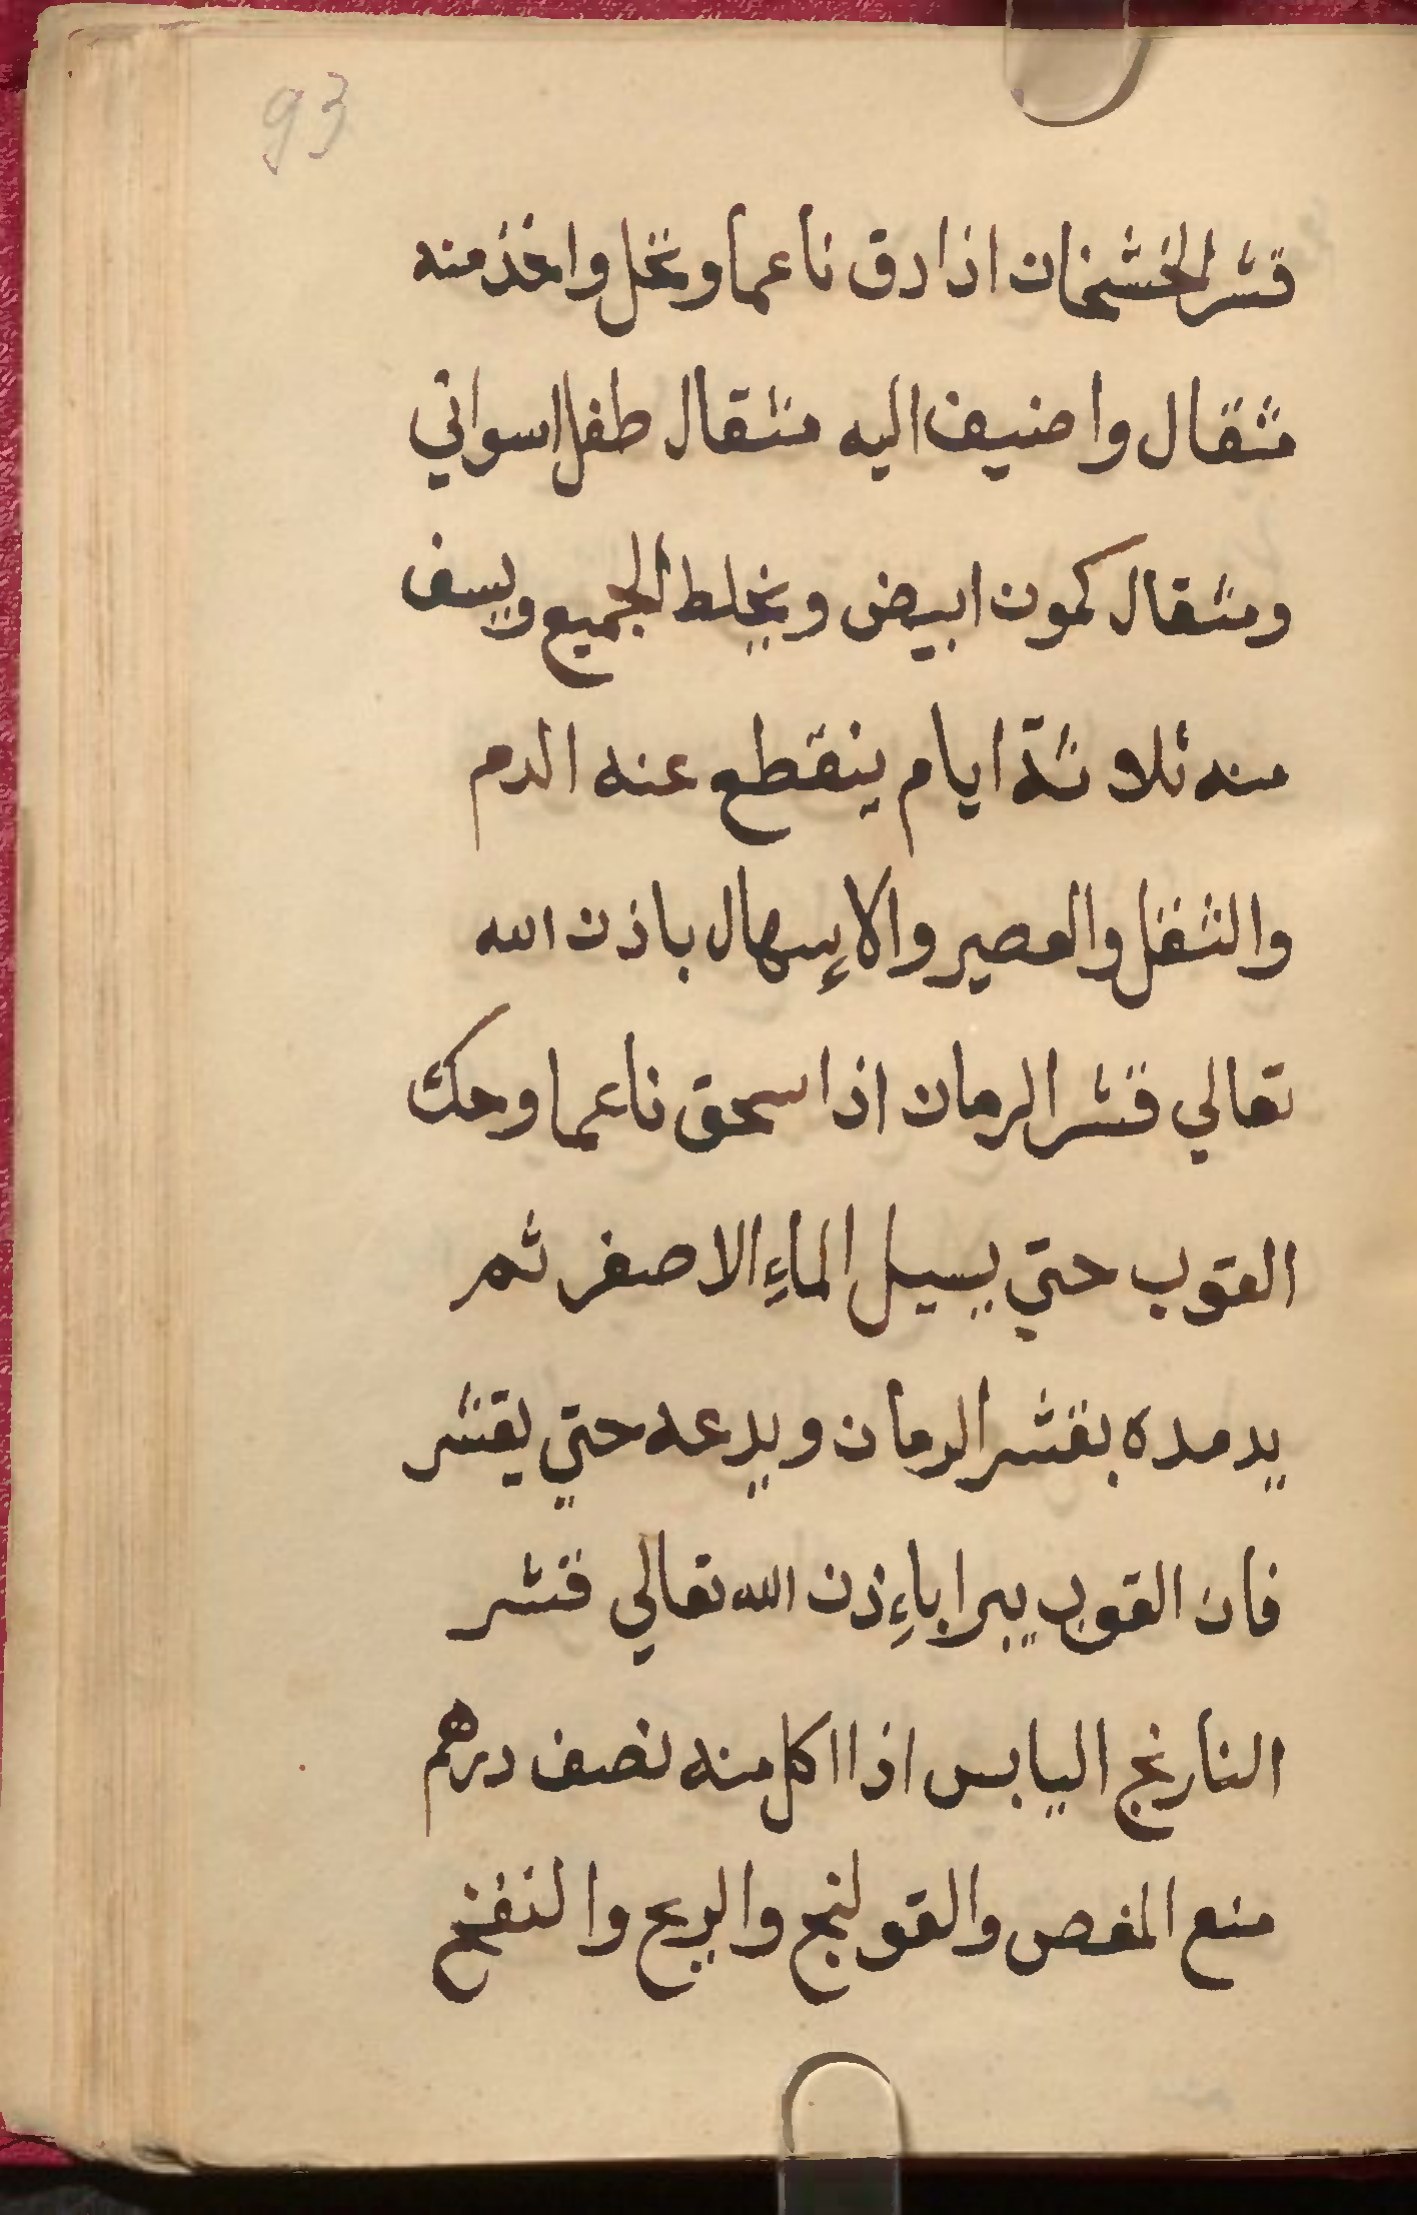 93
قشر الخشخان اذا دق ناعما ونخل واخذ منه
مثقال واضيف اليه مثقال طفل اسواني
ومثقال كمون ابيض ويخلط الجميع ويسف
منه ثلاثة ايام ينقطع عنه الدم
والثفل والعصير والاسهال باذن الله
تعالي قشر الرمان اذا سحق ناعما وحك
القوب حتي يسيل الماء الاصفر ثم
يدمده بقشر الرمان ويدعه حتي يقشر
فان القوب يبرا باءذن الله تعالي قشر
النارنج اليابس اذا اكل منه نصف درهم
منع المغص والقولنج والريح والنفخ